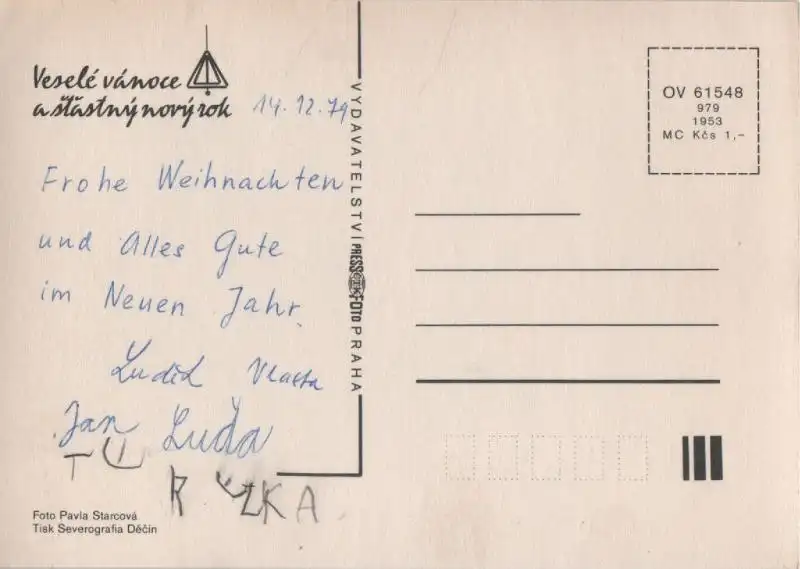 Veselé vánoce
a šťastný nový rok
14.12.79
Frohe Weihnachten
und Alles Gute
im Neuen Jahr.
Luděk Vlasta
Jan Luďa
VYDAVATELSTVÍ PRESSFOTO PRAHA
OV 61548
979
1953
MC Kčs 1,-
Foto Pavla Starcová
Tisk Severografia Děčín